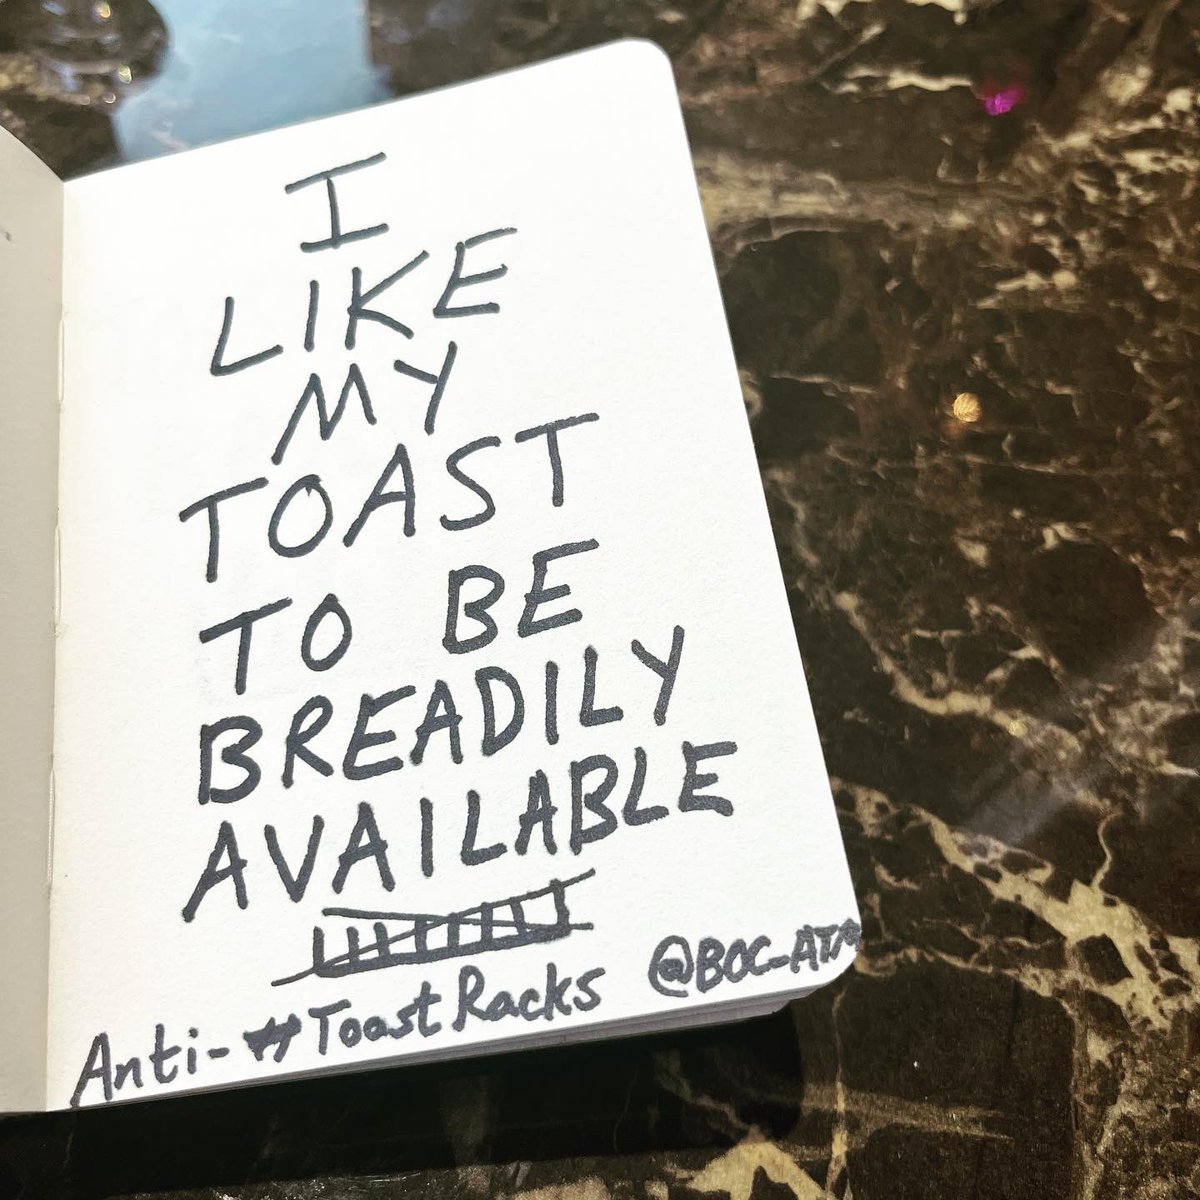 I
LIKE
MY
TOAST
TO BE
BREADILY
AVAILABLE
Anti-#ToastRacks @BOC_ATM